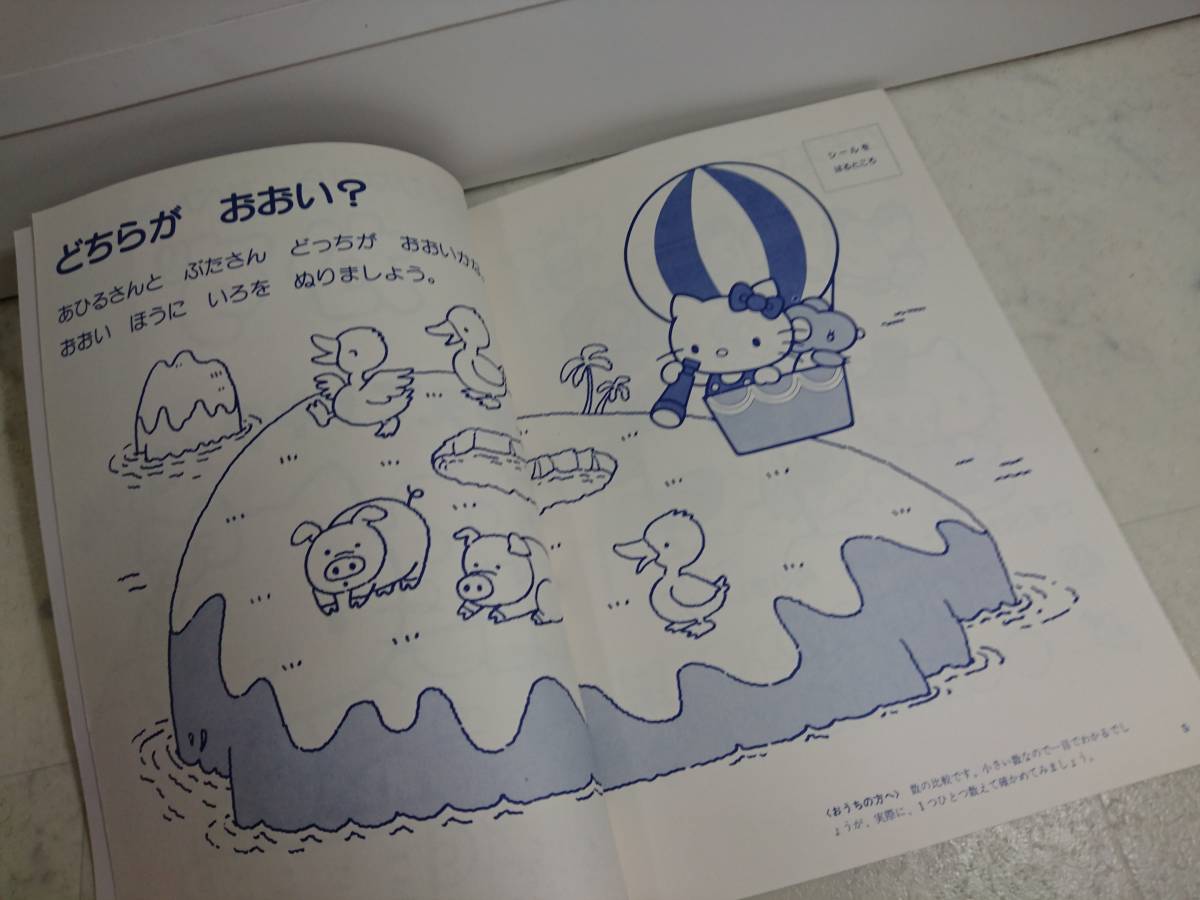 どちらが おおい?
あひるさんと ぶたさん どっちが おおいかな
おおい ほうに いろを ぬりましょう。
シールを
はるところ
〈おうちの方へ〉 数の比較です。小さい数なので一目でわかるでし
ょうが、実際に、1つひとつ数えて確かめてみましょう。
5